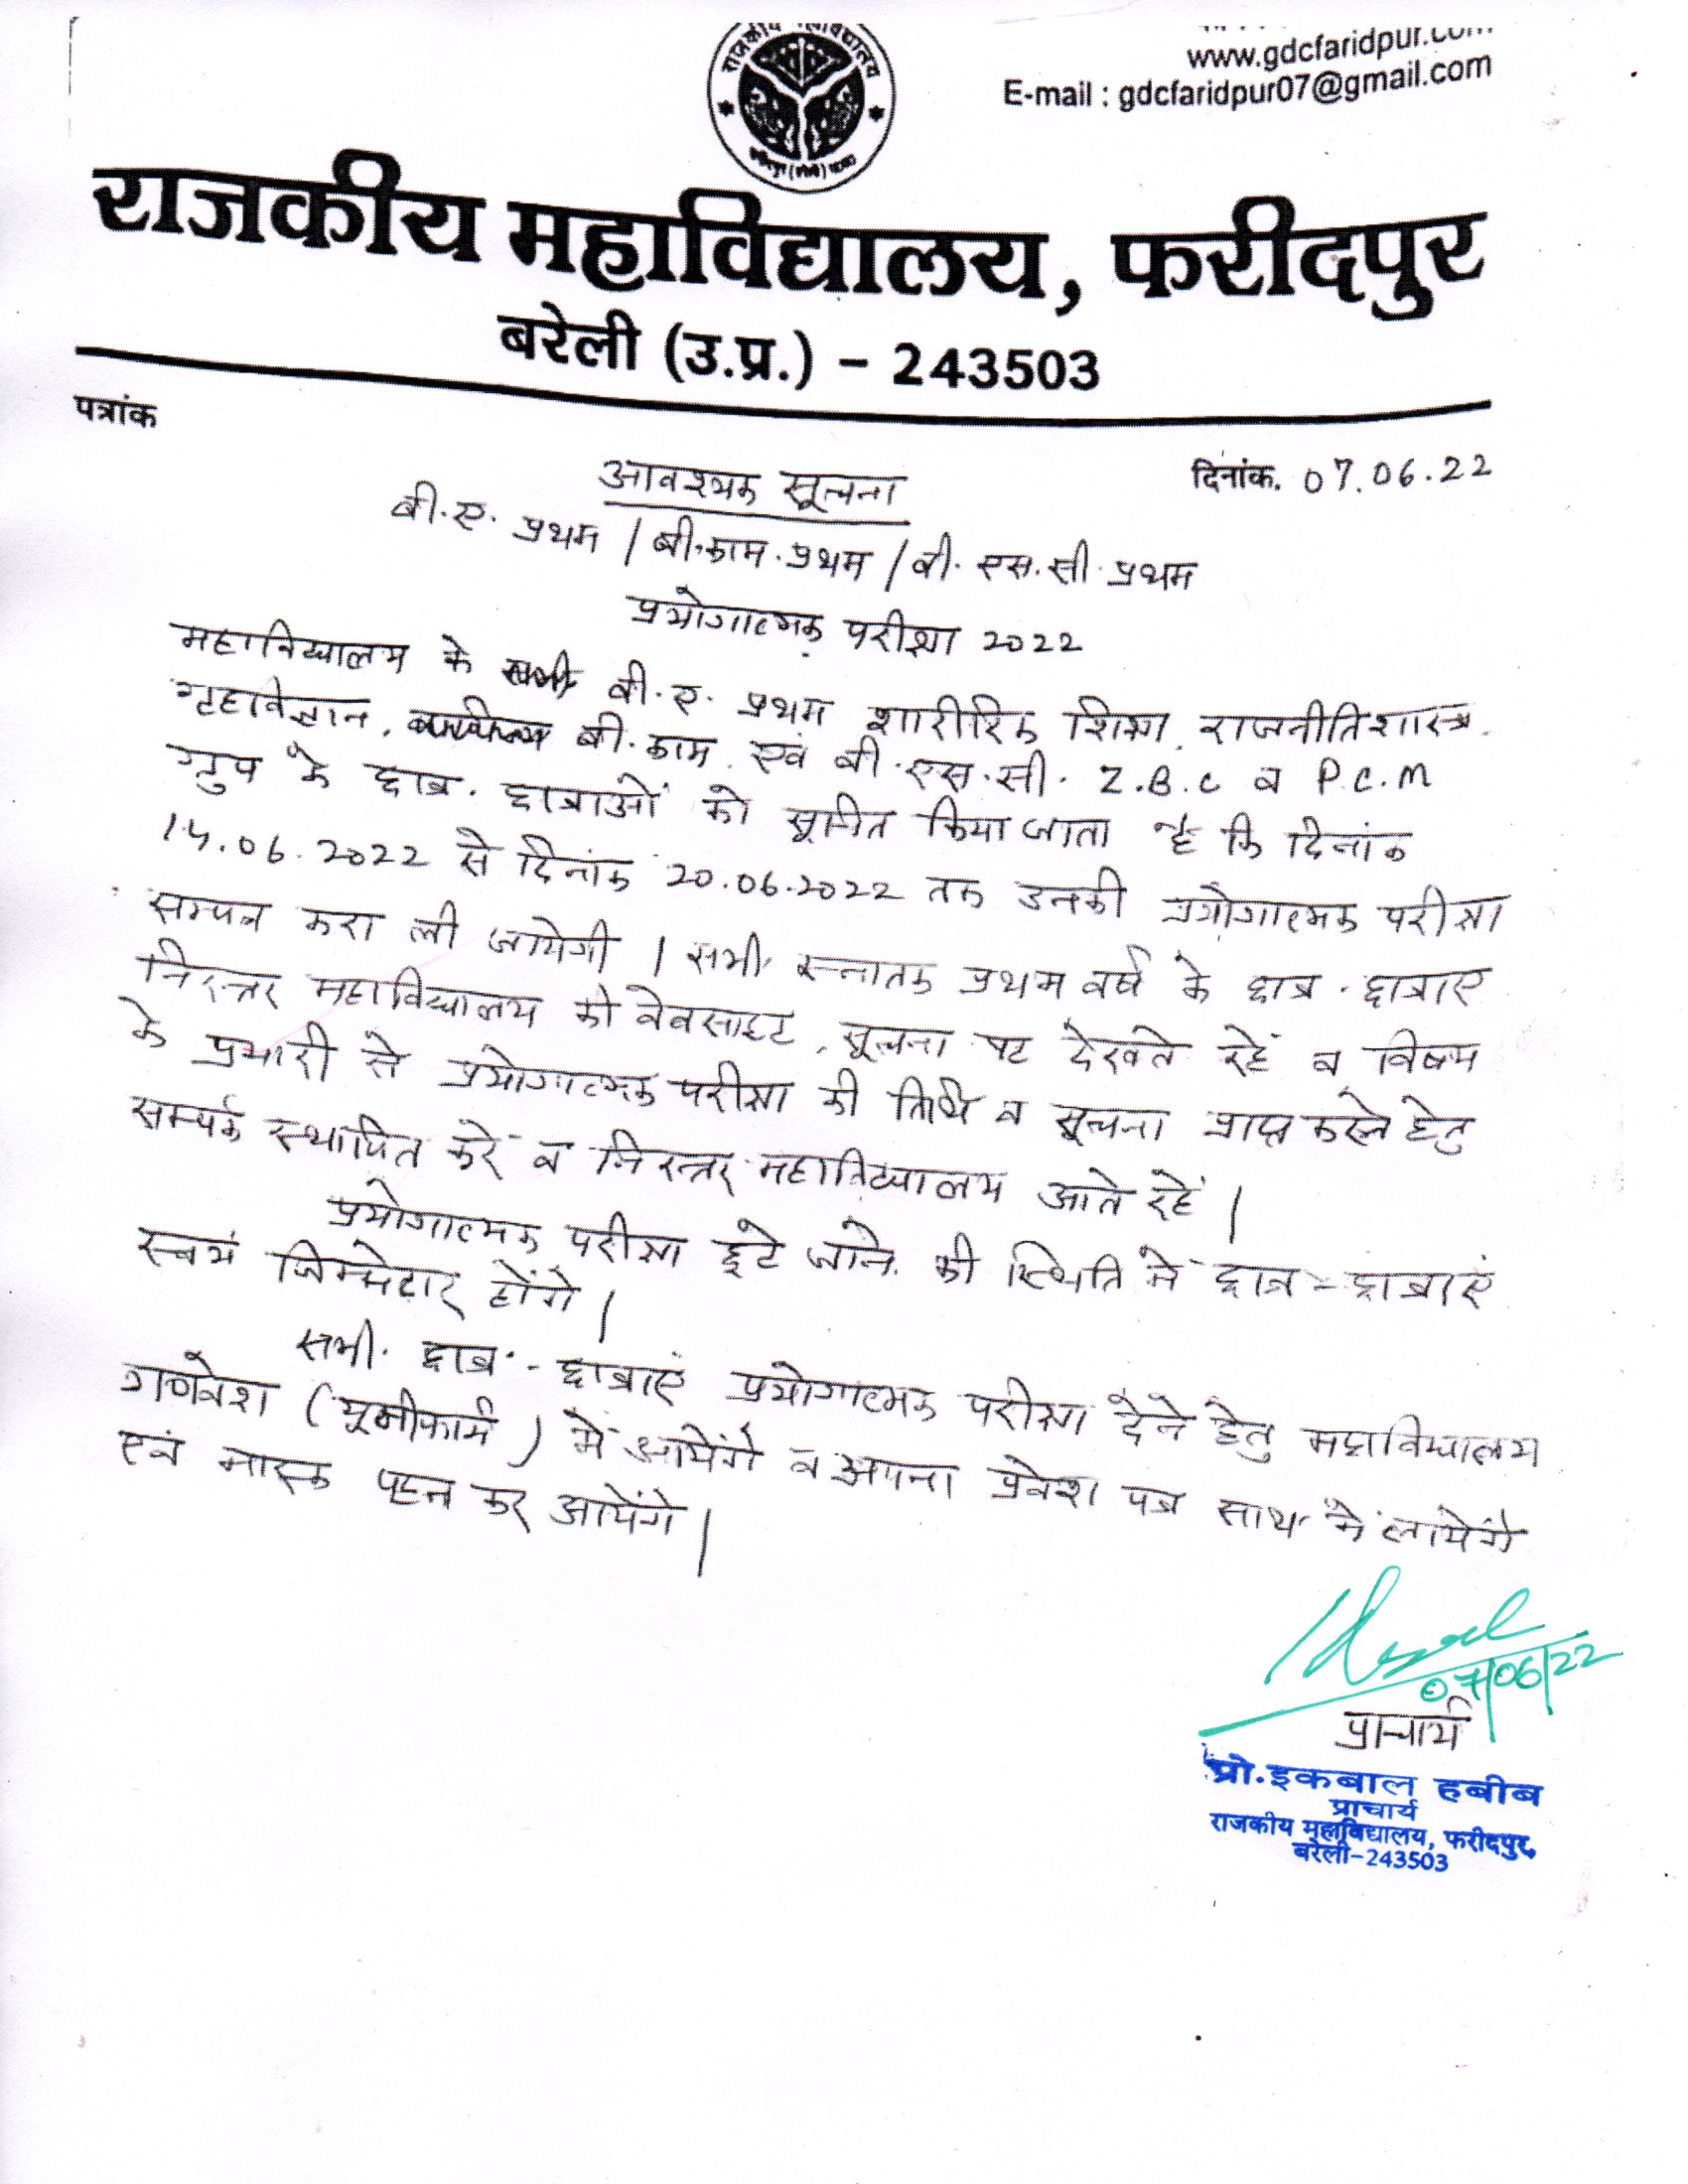 राजकीय महाविद्यालय
फरीदपुर (बरेली)
www.gdcfaridpur.com
E-mail : gdcfaridpur07@gmail.com
राजकीय महाविद्यालय, फरीदपुर
बरेली (उ.प्र.) - 243503
पत्रांक
दिनांक. 07.06.22
आवश्यक सूचना
बी.ए. प्रथम / बी.काम.प्रथम / बी.एस.सी.प्रथम
प्रयोगात्मक परीक्षा 2022
महाविद्यालय के बी.ए. प्रथम शारीरिक शिक्षा, राजनीतिशास्त्र,
गृहविज्ञान, बी.काम. एवं बी.एस.सी. Z.B.C व P.C.M
ग्रुप के छात्र. छात्राओं को सूचित किया जाता है कि दिनांक
.06.2022 से दिनांक 20.06.2022 तक उनकी प्रयोगात्मक परीक्षा
सम्पन्न करा ली जायेगी | सभी स्नातक प्रथम वर्ष के छात्र - छात्राएं
निरन्तर महाविद्यालय की वेवसाइट, सूचना पट देखते रहें व विषय
के प्रभारी से प्रयोगात्मक परीक्षा की तिथि व सूचना प्राप्त करने हेतु
सम्पर्क स्थापित करें व निरन्तर महाविद्यालय आते रहें |
प्रयोगात्मक परीक्षा छूटे जाने की स्थिति में छात्र - छात्राएं
स्वयं जिम्मेदार होंगे |
सभी छात्र - छात्राएं प्रयोगात्मक परीक्षा देने हेतु महाविद्यालय
गणवेश (यूनीफार्म) में आयेंगे व अपना प्रवेश पत्र साथ में लायेंगे
एवं मास्क पहन कर आयेंगे |
07/06/22
प्राचार्य
प्रो.इकबाल हबीब
प्राचार्य
राजकीय महाविद्यालय, फरीदपुर,
बरेली-243503